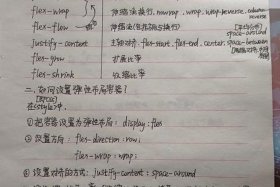 flex-wrap 伸缩法换行, nowrap, wrap, wrap-reverse, column-reverse
flex-flow
justify-content 主轴对齐: flex-start, flex-end, center, space-between
space-around
flex-grow 扩展比率
flex-shrink 收缩比率
二. 如何设置弹性布局容器?
在<style>中,
① 把容器设置为弹性布局: display: flex
② 设置方向: flex-direction: row;
flex-wrap: wrap;
③ 设置对齐的方式: justify-content: space-around